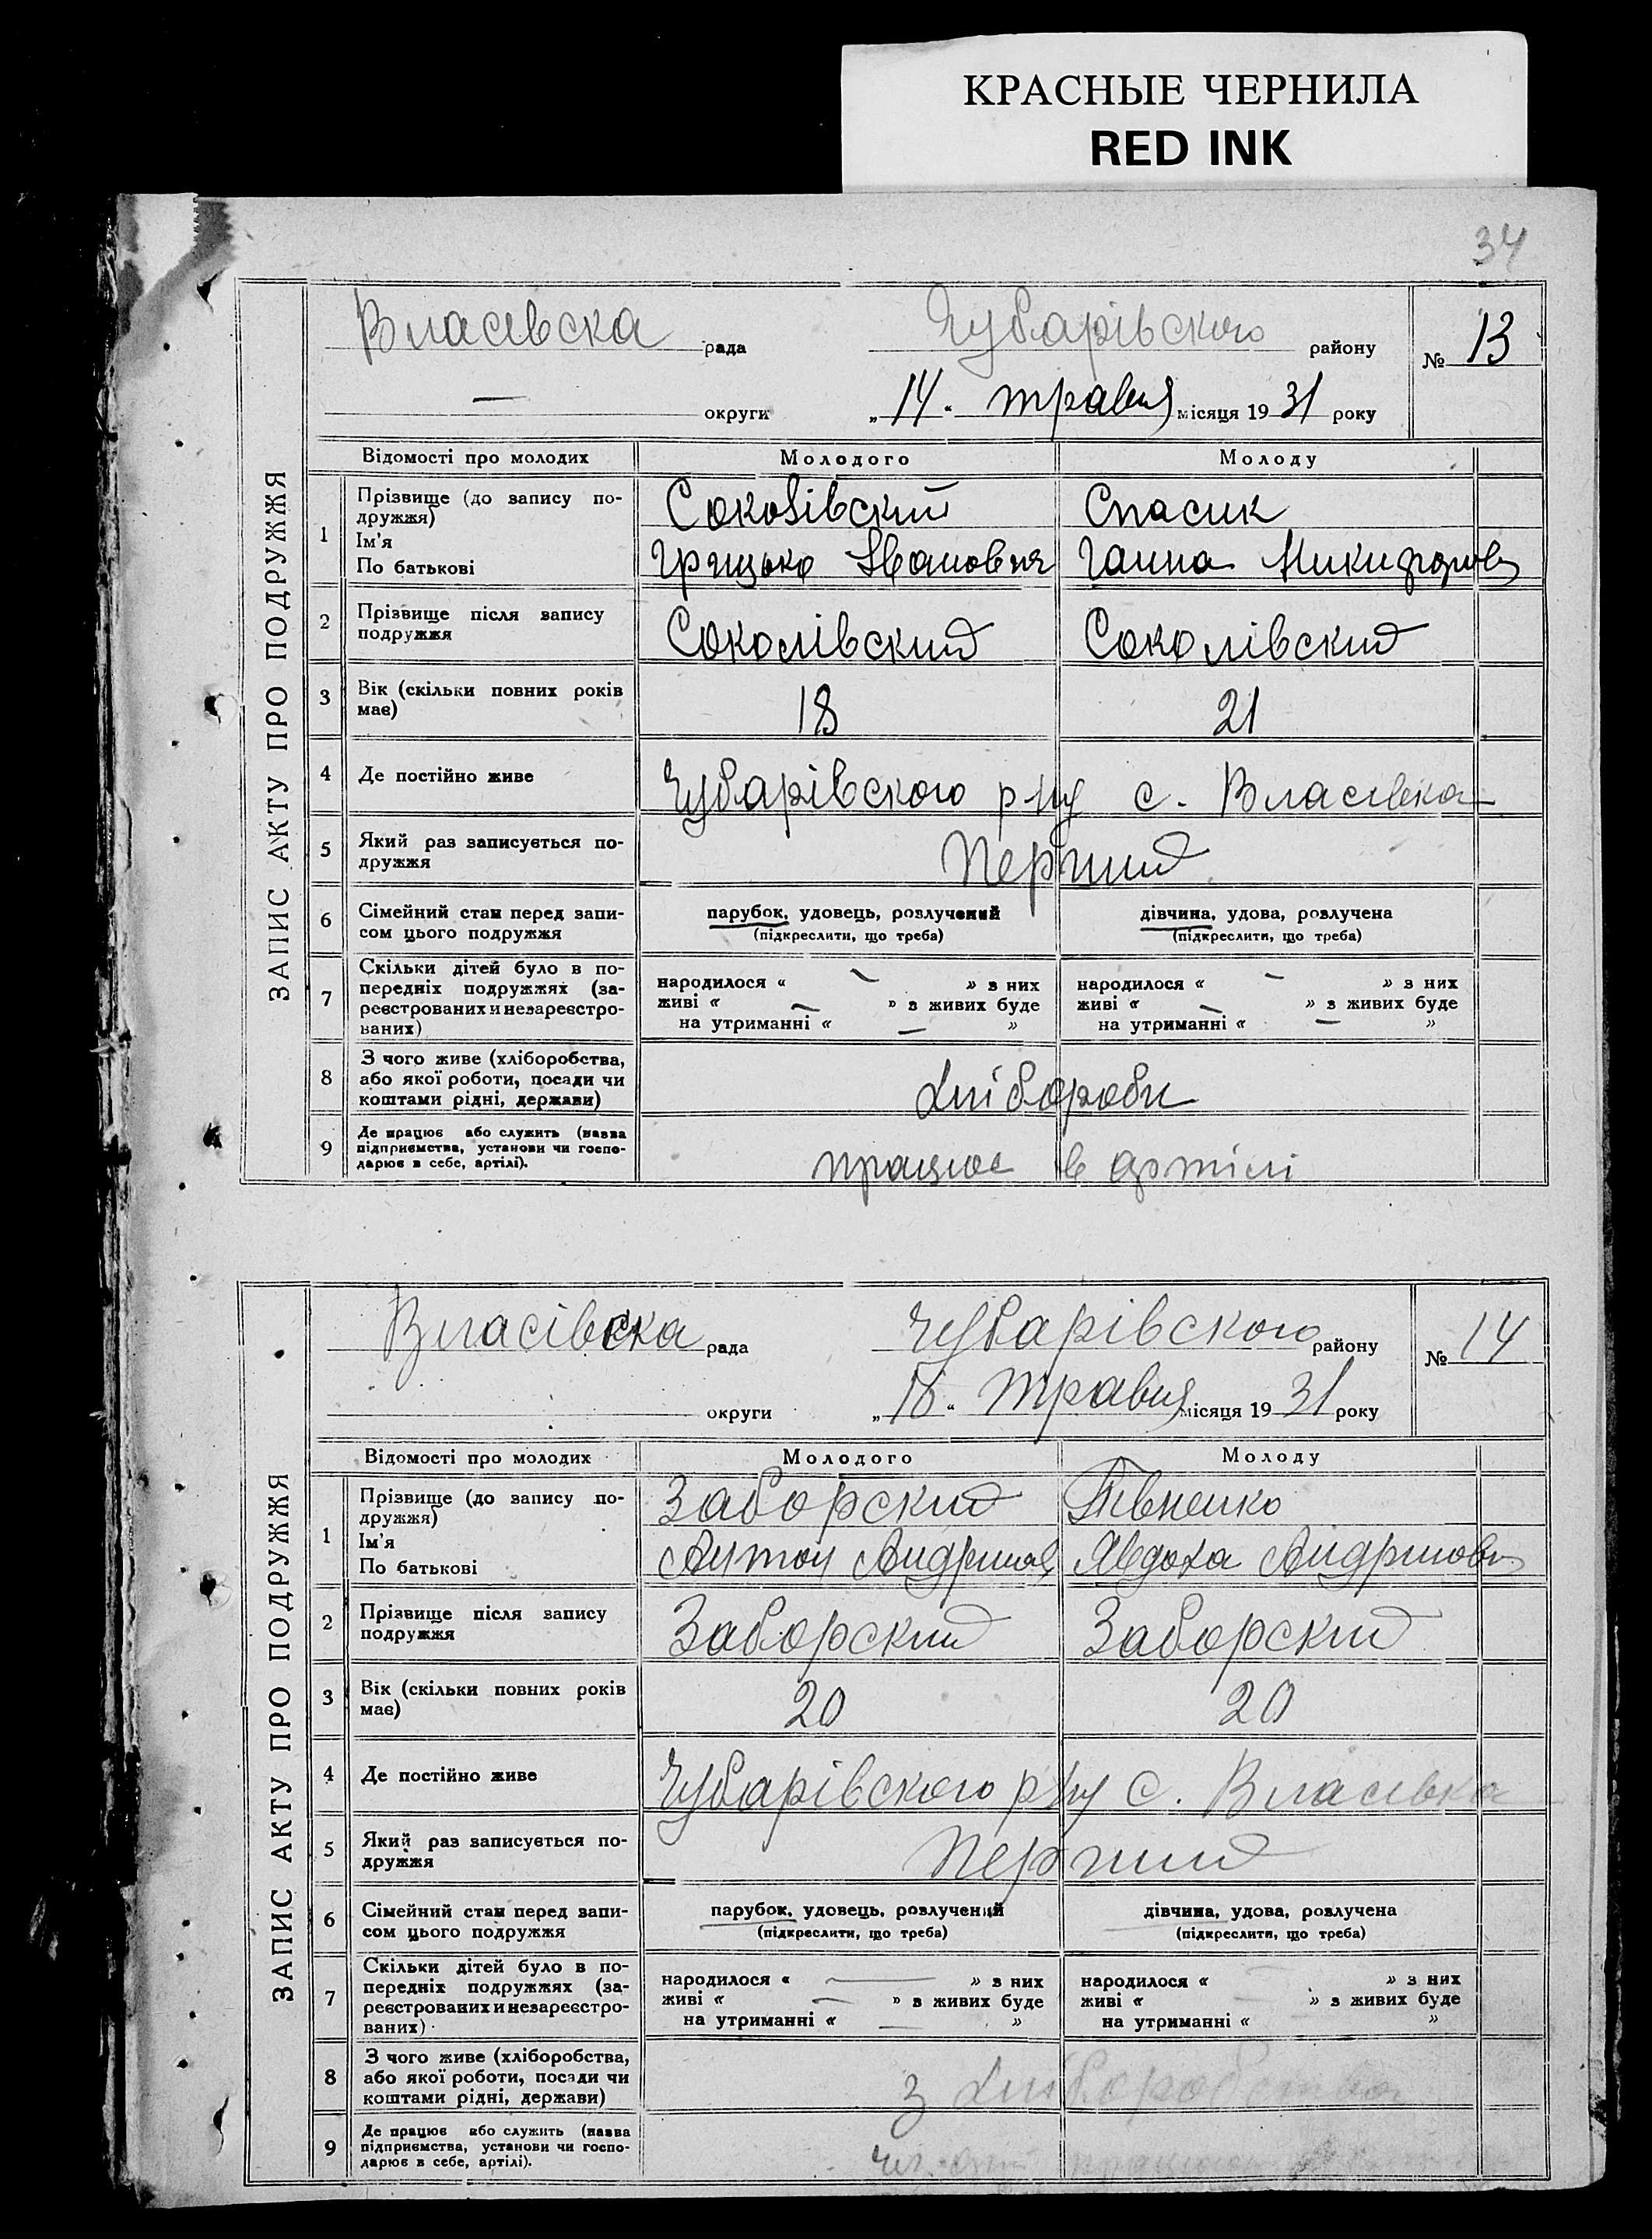 КРАСНЫЕ ЧЕРНИЛА
RED INK
34
ЗАПИС АКТУ ПРО ПОДРУЖЖЯ
Власівска рада Чубарівского району № 13
— округи „14“ травня місяця 1931 року
Відомості про молодих Молодого Молоду
1 Прізвище (до запису по-
дружжя) Соколівский Спасик
Ім'я
По батькові Грицько Іванович Ганна
2 Прізвище після запису
подружжя Соколівский Соколівский
3 Вік (скільки повних років
має) 18 21
4 Де постійно живе Чубарівского р-ну с. Власівка
5 Який раз записується по-
дружжя Перший
6 Сімейний стан перед запи-
сом цього подружжя парубок, удовець, розлучений дівчина, удова, розлучена
(підкреслити, що треба) (підкреслити, що треба)
7 Скільки дітей було в по-
передніх подружжях (за-
реєстрованих и незареєстро-
ваних)
народилося « — » з них народилося « — » з них
живі « — » з живих буде живі « — » з живих буде
на утриманні « — » на утриманні « — »
8 З чого живе (хліборобства,
або якої роботи, посади чи
коштами рідні, держави) Хлібороби
9 Де працює або служить (назва
підприємства, установи чи госпо-
дарює в себе, артілі). працює в артілі
ЗАПИС АКТУ ПРО ПОДРУЖЖЯ
Власівска рада Чубарівского району № 14
округи „ “ травня місяця 1931 року
Відомості про молодих Молодого Молоду
1 Прізвище (до запису по-
дружжя) Заборский Півненко
Ім'я
По батькові Антон Явдоха
2 Прізвище після запису
подружжя Заборский Заборский
3 Вік (скільки повних років
має) 20 20
4 Де постійно живе Чубарівского р-ну с. Власівка
5 Який раз записується по-
дружжя Перший
6 Сімейний стан перед запи-
сом цього подружжя парубок, удовець, розлучений дівчина, удова, розлучена
(підкреслити, що треба) (підкреслити, що треба)
7 Скільки дітей було в по-
передніх подружжях (за-
реєстрованих и незареєстро-
ваних)
народилося « — » з них народилося « » з них
живі « — » з живих буде живі « » з живих буде
на утриманні « — » на утриманні « »
8 З чого живе (хліборобства,
або якої роботи, посади чи
коштами рідні, держави) з хліборобства
9 Де працює або служить (назва
підприємства, установи чи госпо-
дарює в себе, артілі).